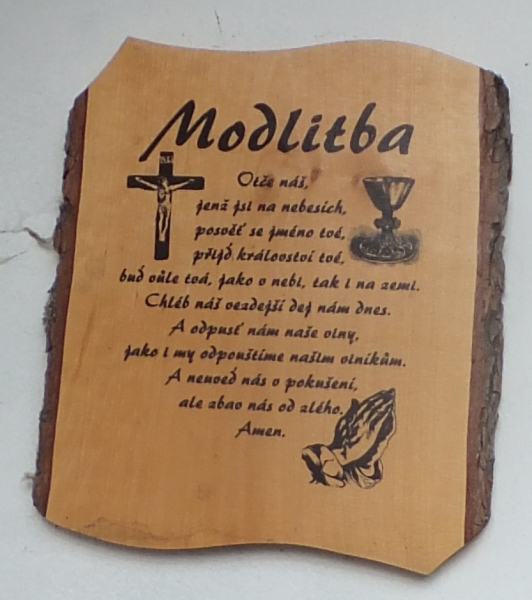 Modlitba
Otče náš,
jenž jsi na nebesích,
posvěť se jméno tvé,
přijď království tvé,
buď vůle tvá, jako v nebi, tak i na zemi.
Chléb náš vezdejší dej nám dnes.
A odpusť nám naše viny,
jako i my odpouštíme našim viníkům.
A neuveď nás v pokušení,
ale zbav nás od zlého.
Amen.